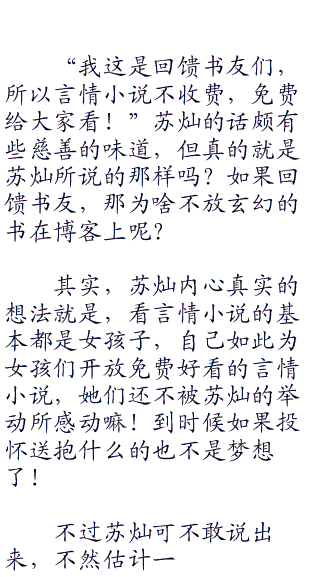 “我这是回馈书友们，
所以言情小说不收费，免费
给大家看！”苏灿的话颇有
些慈善的味道，但真的就是
苏灿所说的那样吗？如果回
馈书友，那为啥不放玄幻的
书在博客上呢？
其实，苏灿内心真实的
想法就是，看言情小说的基
本都是女孩子，自己如此为
女孩们开放免费好看的言情
小说，她们还不被苏灿的举
动所感动嘛！到时候如果投
怀送抱什么的也不是梦想
了！
不过苏灿可不敢说出
来，不然估计一